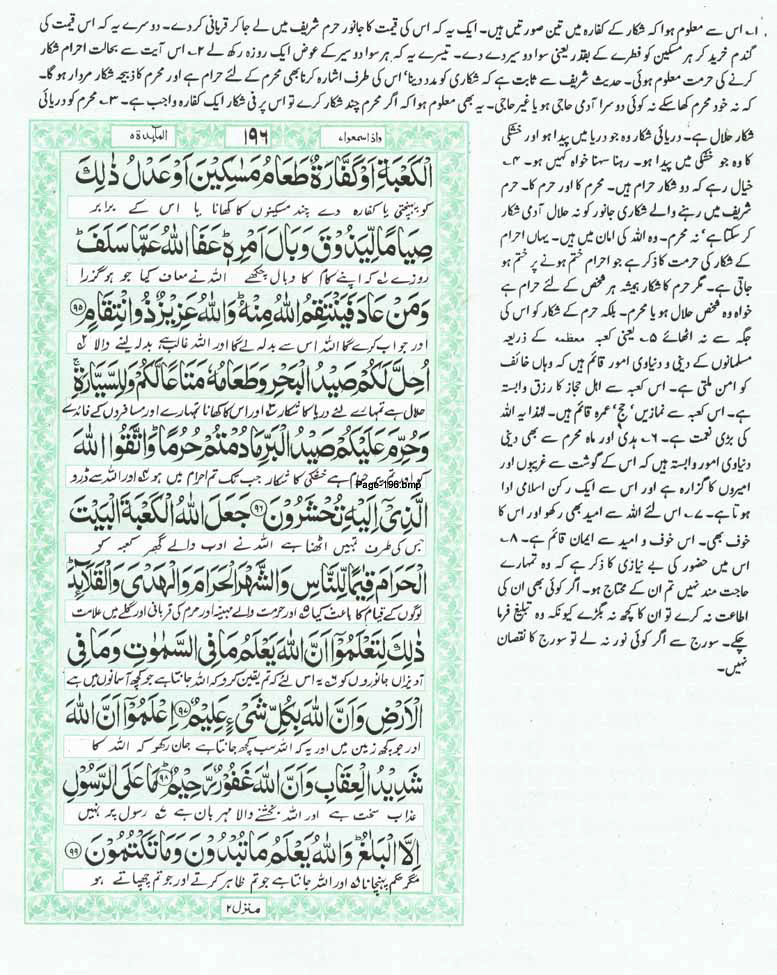 ۱؎ اس سے معلوم ہوا کہ شکار کے کفارہ میں تین صورتیں ہیں۔ ایک یہ کہ اس کی قیمت کا جانور حرم شریف میں لے جا کر قربانی کر دے۔ دوسرے یہ کہ اس قیمت کی
گندم خرید کر ہر مسکین کو فطرے کے بقدر یعنی سوا دو سیر دے دے۔ تیسرے یہ کہ ہر سوا دو سیر کے عوض ایک روزہ رکھ لے ۲؎ اس آیت سے بحالت احرام شکار
کرنے کی حرمت معلوم ہوئی۔ حدیث شریف سے ثابت ہے کہ شکاری کو مدد دینا' اس کی طرف اشارہ کرنا بھی محرم کے لئے حرام ہے اور محرم کا ذبیحہ شکار مردار ہو گا۔
کہ نہ خود محرم کھا سکے نہ کوئی دوسرا آدمی حاجی ہو یا غیر حاجی۔ یہ بھی معلوم ہوا کہ اگر محرم چند شکار کرے تو اس پر فی شکار ایک کفارہ واجب ہے۔ ۳؎ محرم کو دریائی
شکار حلال ہے۔ دریائی شکار وہ جو دریا میں پیدا ہو اور خشکی
کا وہ جو خشکی میں پیدا ہو۔ رہنا سہنا خواہ کہیں ہو۔ ۴؎
خیال رہے کہ دو شکار حرام ہیں۔ محرم کا اور حرم کا۔ حرم
شریف میں رہنے والے شکاری جانور کو نہ حلال آدمی شکار
کر سکتا ہے' نہ محرم۔ وہ اللہ کی امان میں ہیں۔ یہاں احرام
کے شکار کی حرمت کا ذکر ہے جو احرام ختم ہونے پر ختم ہو
جاتی ہے۔ مگر حرم کا شکار ہمیشہ ہر شخص کے لئے حرام ہے
خواہ وہ شخص حلال ہو یا محرم۔ بلکہ حرم کے شکار کو اس کی
جگہ سے نہ اٹھائے ۵؎ یعنی کعبہ معظمہ کے ذریعہ
مسلمانوں کے دینی و دنیاوی امور قائم ہیں کہ وہاں خائف
کو امن ملتی ہے۔ اس کعبہ سے اہل حجاز کا رزق وابستہ
ہے۔ اس کعبہ سے نمازیں' حج' عمرہ قائم ہیں۔ لہٰذا یہ اللہ
کی بڑی نعمت ہے۔ ۶؎ ہدی اور ماہ محرم سے بھی دینی
دنیاوی امور وابستہ ہیں کہ اس کے گوشت سے غریبوں اور
امیروں کا گزارہ ہے اور اس سے ایک رکن اسلامی ادا
ہوتا ہے۔ ۷؎ اس لئے اللہ سے امید بھی رکھو اور اس کا
خوف بھی۔ اس خوف و امید سے ایمان قائم ہے۔ ۸؎
اس میں حضور کی بے نیازی کا ذکر ہے کہ وہ تمہارے
حاجت مند نہیں تم ان کے محتاج ہو۔ اگر کوئی بھی ان کی
اطاعت نہ کرے تو ان کا کچھ نہ بگڑے کیونکہ وہ تبلیغ فرما
چکے۔ سورج سے اگر کوئی نور نہ لے تو سورج کا نقصان
نہیں۔
واذا سمعوا۷ ۱۹۶ المآئدۃ۵
الْكَعْبَةِ اَوْ كَفَّارَةٌ طَعَامُ مَسٰكِيْنَ اَوْ عَدْلُ ذٰلِكَ
کو پہنچتی یا کفارہ دے چند مسکینوں کا کھانا یا اس کے برابر
صِيَامًا لِّيَذُوْقَ وَبَالَ اَمْرِهٖ ؕ عَفَا اللّٰهُ عَمَّا سَلَفَ ؕ
روزے کہ اپنے کام کا وبال چکھے اللہ نے معاف کیا جو ہو گزرا
وَمَنْ عَادَ فَيَنْتَقِمُ اللّٰهُ مِنْهُ ؕ وَاللّٰهُ عَزِيْزٌ ذُو انْتِقَامٍ ۹۵
اور جو اب کرے گا اللہ اس سے بدلہ لے گا اور اللہ غالب ہے بدلہ لینے والا
اُحِلَّ لَكُمْ صَيْدُ الْبَحْرِ وَطَعَامُهٗ مَتَاعًا لَّكُمْ وَلِلسَّيَّارَةِ ۚ
حلال ہے تمہارے لئے دریا کا شکار اور اس کا کھانا تمہارے اور مسافروں کے فائدے
وَحُرِّمَ عَلَيْكُمْ صَيْدُ الْبَرِّ مَا دُمْتُمْ حُرُمًا ؕ وَاتَّقُوا اللّٰهَ
کو اور تم پر حرام ہے خشکی کا شکار جب تک تم احرام میں ہو ۴؎ اور اللہ سے ڈرو
Page-196.bmp
الَّذِيْٓ اِلَيْهِ تُحْشَرُوْنَ ۹۶ جَعَلَ اللّٰهُ الْكَعْبَةَ الْبَيْتَ
جس کی طرف تمہیں اٹھنا ہے اللہ نے ادب والے گھر کعبہ کو
الْحَرَامَ قِيٰمًا لِّلنَّاسِ وَالشَّهْرَ الْحَرَامَ وَالْهَدْيَ وَالْقَلَآئِدَ ؕ
لوگوں کے قیام کا باعث کیا ۵؎ اور حرمت والے مہینہ اور حرم کی قربانی اور گلے میں علامت
ذٰلِكَ لِتَعْلَمُوْٓا اَنَّ اللّٰهَ يَعْلَمُ مَا فِي السَّمٰوٰتِ وَمَا فِي
آویزاں جانوروں کو ۶؎ یہ اس لئے کہ تم یقین کرو کہ اللہ جانتا ہے جو کچھ آسمانوں میں ہے
الْاَرْضِ وَاَنَّ اللّٰهَ بِكُلِّ شَيْءٍ عَلِيْمٌ ۹۷ اِعْلَمُوْٓا اَنَّ اللّٰهَ
اور جو کچھ زمین میں اور یہ کہ اللہ سب کچھ جانتا ہے جان رکھو کہ اللہ کا
شَدِيْدُ الْعِقَابِ وَاَنَّ اللّٰهَ غَفُوْرٌ رَّحِيْمٌ ۹۸ مَا عَلَى الرَّسُوْلِ
عذاب سخت ہے اور اللہ بخشنے والا مہربان ہے ۷؎ رسول پر نہیں
اِلَّا الْبَلٰغُ ؕ وَاللّٰهُ يَعْلَمُ مَا تُبْدُوْنَ وَمَا تَكْتُمُوْنَ ۹۹
مگر حکم پہنچانا ۸؎ اور اللہ جانتا ہے جو تم ظاہر کرتے اور جو تم چھپاتے ہو
منزل ۲